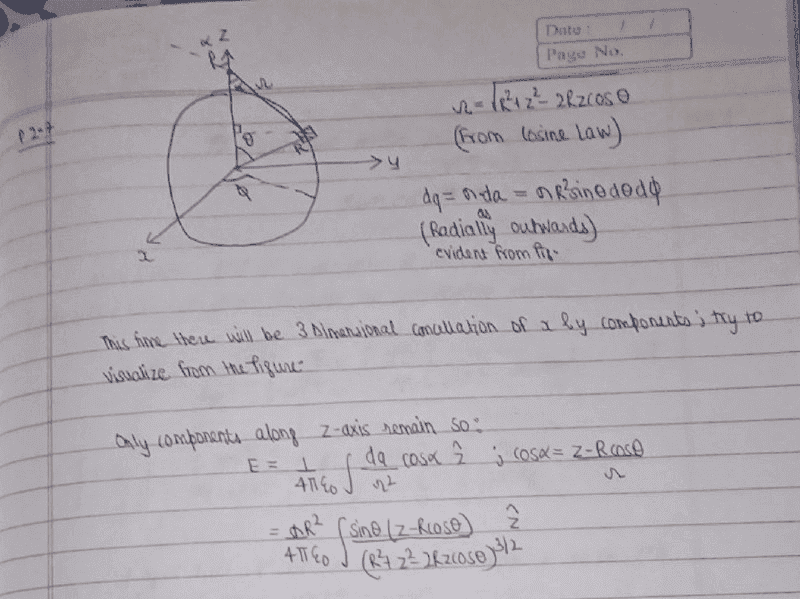 Date : / /
Page No.
P 2.7
α z
P
r
θ
R
y
φ
x
r = √R²+z²-2Rzcosθ
(From Cosine Law)
dq = σda = σR²sinθdθdφ
(Radially outwards)
as
evident from fig.
This time there will be 3 Dimensional cancellation of x & y components ; try to
visualize from the figure.
Only components along z-axis remain so :
E = 1/4πε₀ ∫ dq/r² cosα ẑ ; cosα = z-Rcosθ/r
= σR²/4πε₀ ∫ sinθ(z-Rcosθ)/(R²+z²-2Rzcosθ)^3/2 ẑ